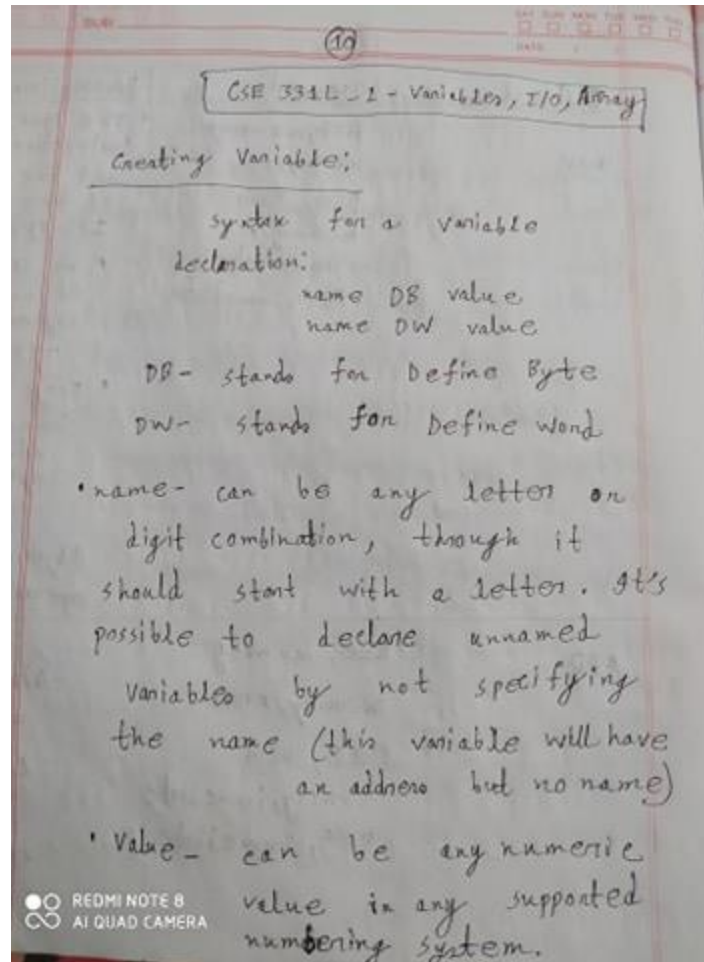 SUB:
SAT SUN MON TUE WED THU
DATE: / /
10
CSE 331L-1 - Variables, I/O, Array
Creating Variable:
syntax for a variable
declaration:
name DB value
name DW value
DB- stands for Define Byte
DW- stands for Define Word
• name - can be any letter or
digit combination, through it
should start with a letter. It's
possible to declare unnamed
variables by not specifying
the name (this variable will have
an address but no name)
• Value - can be any numeric
value in any supported
numbering system.
REDMI NOTE 8
AI QUAD CAMERA